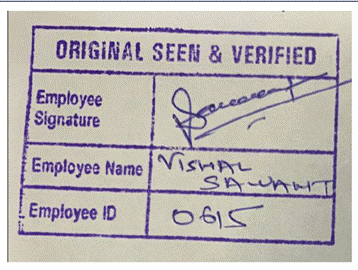 ORIGINAL SEEN & VERIFIED
Employee
Signature
Employee Name VISHAL
SAWANT
Employee ID 0615